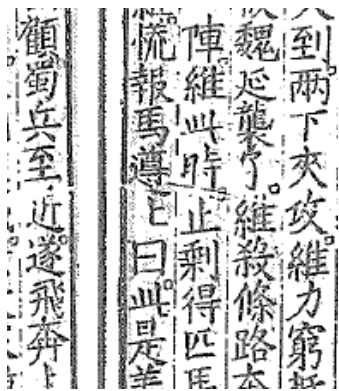 到。兩下夾攻。維力窮
魏延襲了。維殺條路奔
陣維此時。止剩得匹馬
慌報馬遵〻曰。此是姜
顧蜀兵至近。遂飛奔上